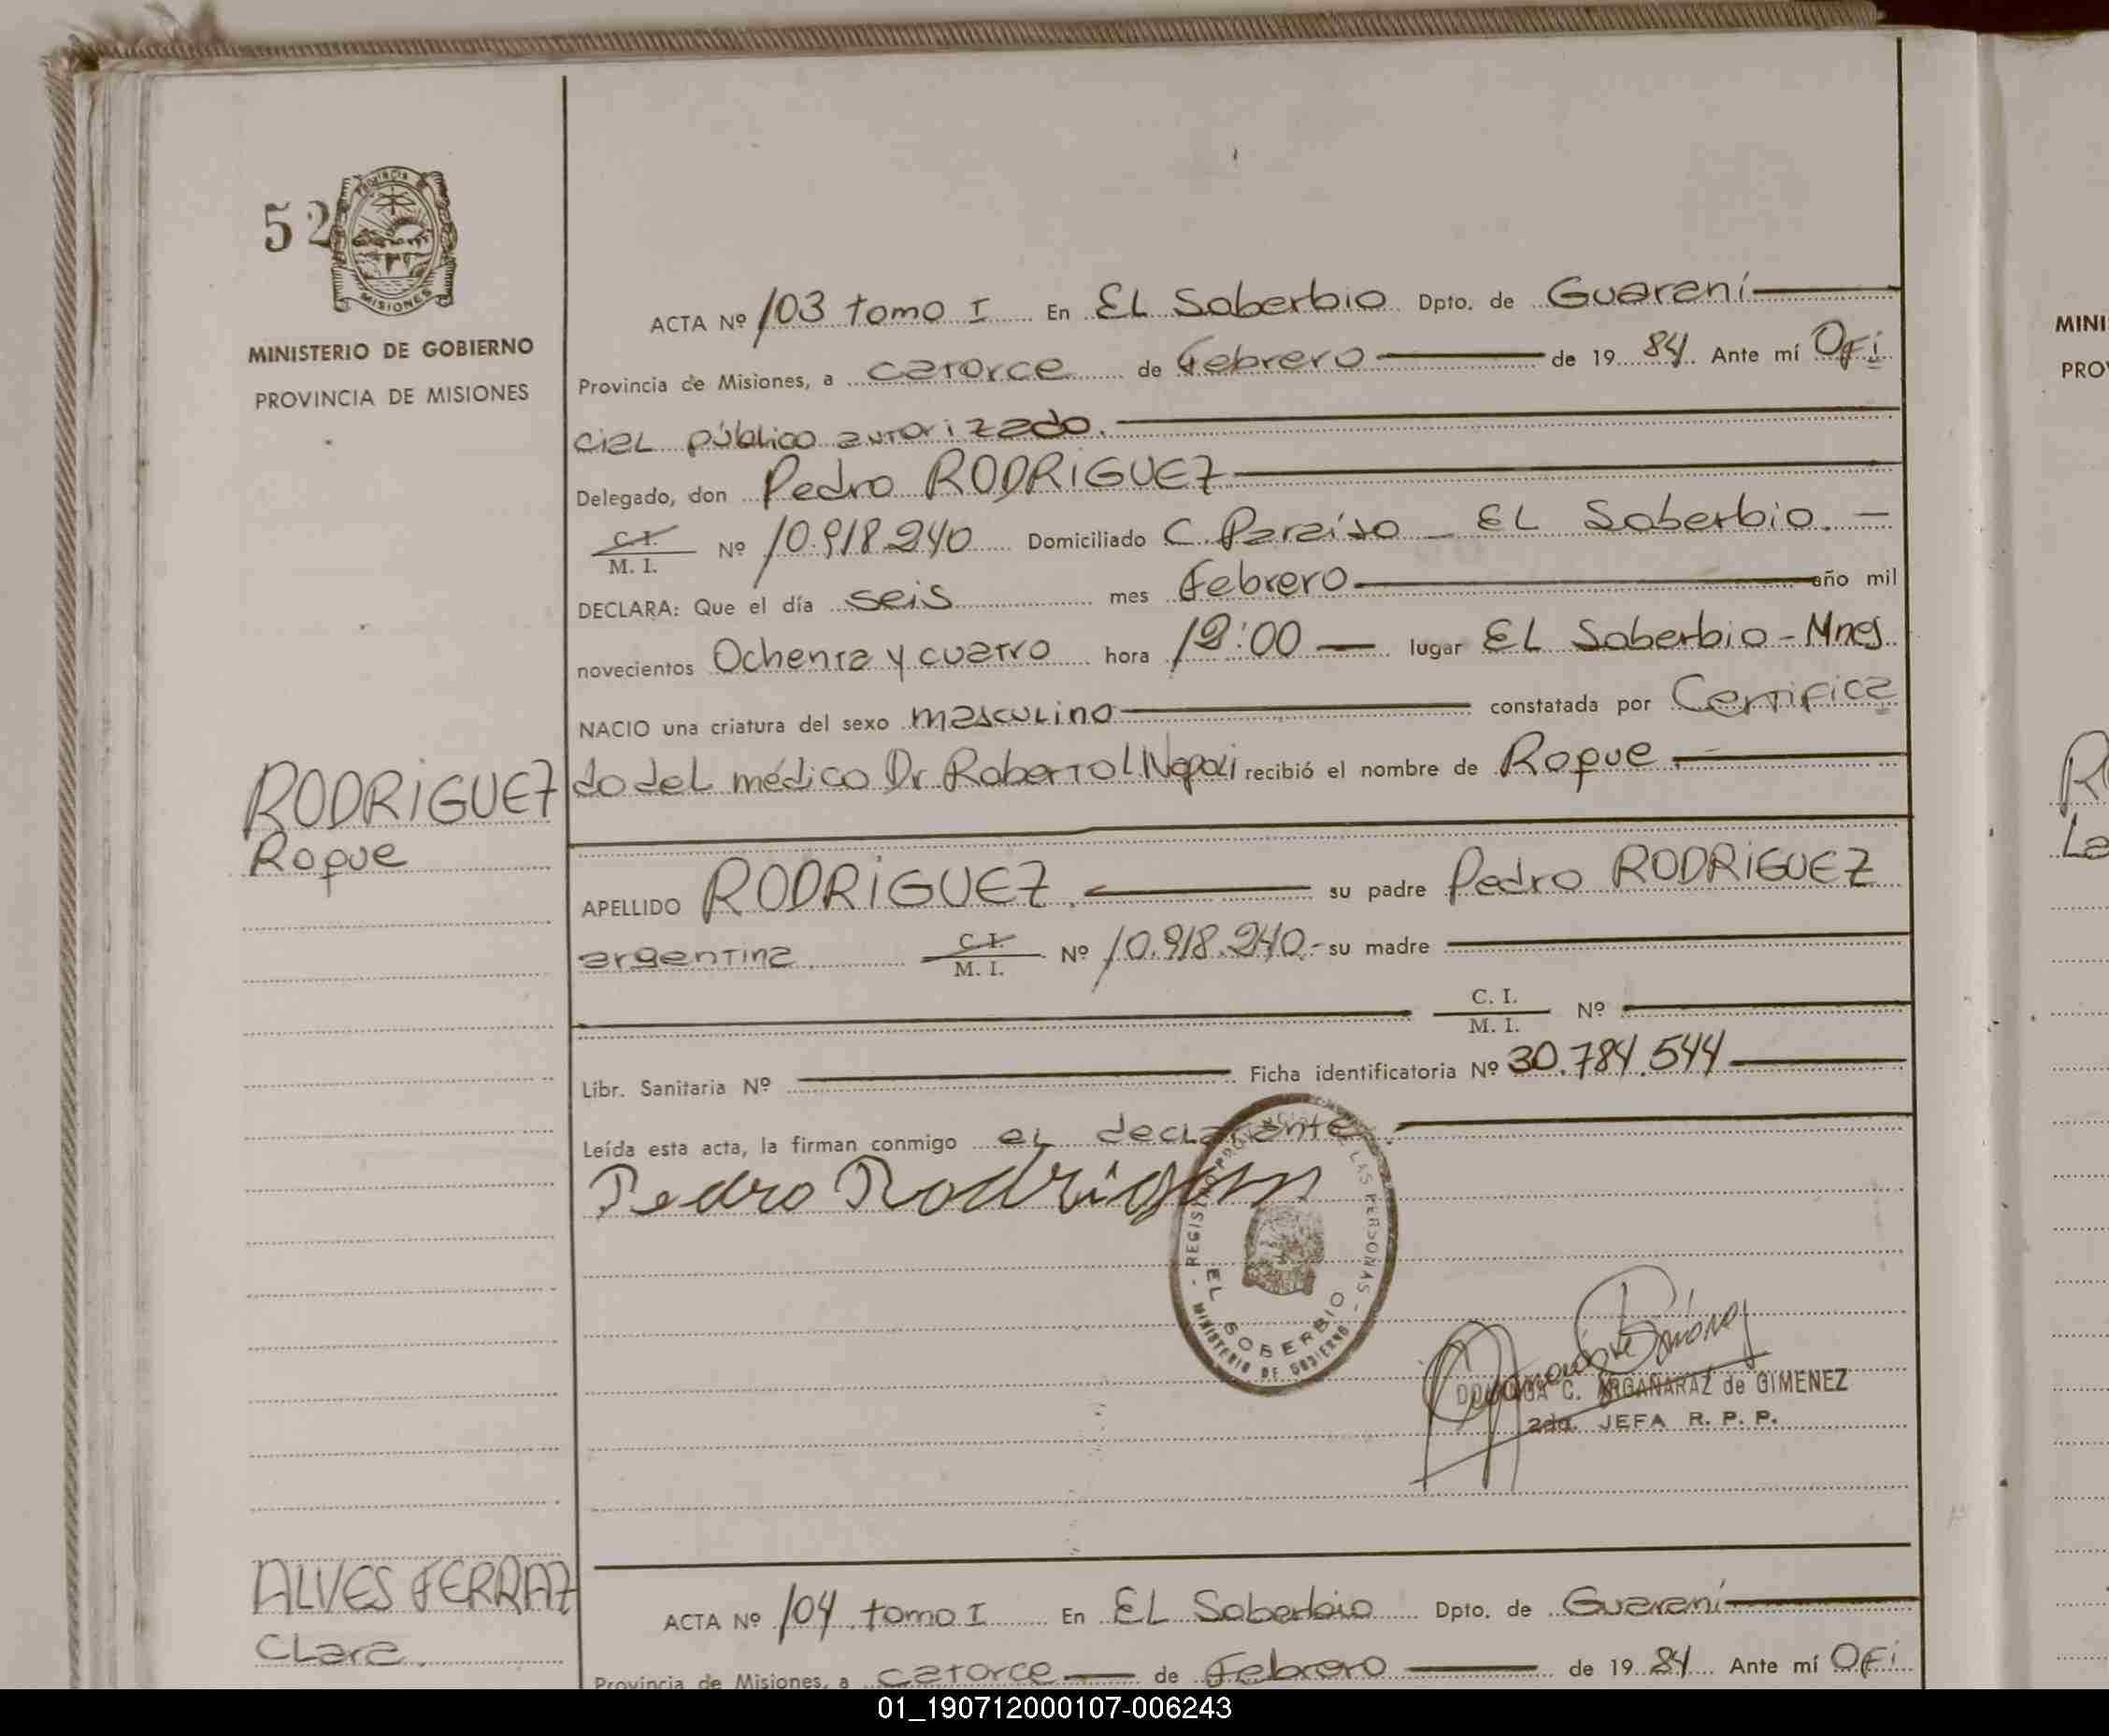 52
PROVINCIA
MISIONES
MINISTERIO DE GOBIERNO
PROVINCIA DE MISIONES
ACTA Nº 103 tomo I En EL Soberbio Dpto. de Guaraní
Provincia de Misiones, a catorce de febrero de 1984 Ante mí Ofi
cial público autorizado.
Delegado, don Pedro RODRIGUEZ
C. I. / M. I. Nº 10.918.240 Domiciliado C. Paraíso - EL Soberbio. -
DECLARA: Que el día seis mes febrero año mil
novecientos Ochenta y cuatro hora 12:00 lugar EL Soberbio - Mnes.
NACIO una criatura del sexo masculino constatada por Certifica
do del médico Dr. Roberto L Napoli recibió el nombre de Roque
RODRIGUEZ
Roque
APELLIDO RODRIGUEZ. su padre Pedro RODRIGUEZ
argentina C. I. / M. I. Nº 10.918.240.- su madre
C. I. / M. I. Nº
Libr. Sanitaria Nº Ficha identificatoria Nº 30.784.544
Leída esta acta, la firman conmigo el declarante.
Pedro Rodriguez
REGISTRO PROVINCIAL DE LAS PERSONAS
EL SOBERBIO
MINISTERIO DE GOBIERNO
C. ARGAÑARAZ de GIMENEZ
2da. JEFA R. P. P.
ALVES FERRAZ
Clara.
ACTA Nº 104 tomo I En EL Soberbio Dpto. de Guaraní
Provincia de Misiones, a catorce de febrero de 1984 Ante mí Ofi
MINI
PRO
01_190712000107-006243